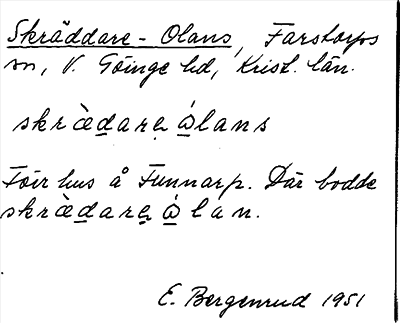 Skräddare-Olans, Farstorps
sn, V. Göinge hd, Krist. län.
skrædarę ålans
Förr hus å Funnarp. Där bodde
skrædarę ålan.
E. Bergenrud 1951